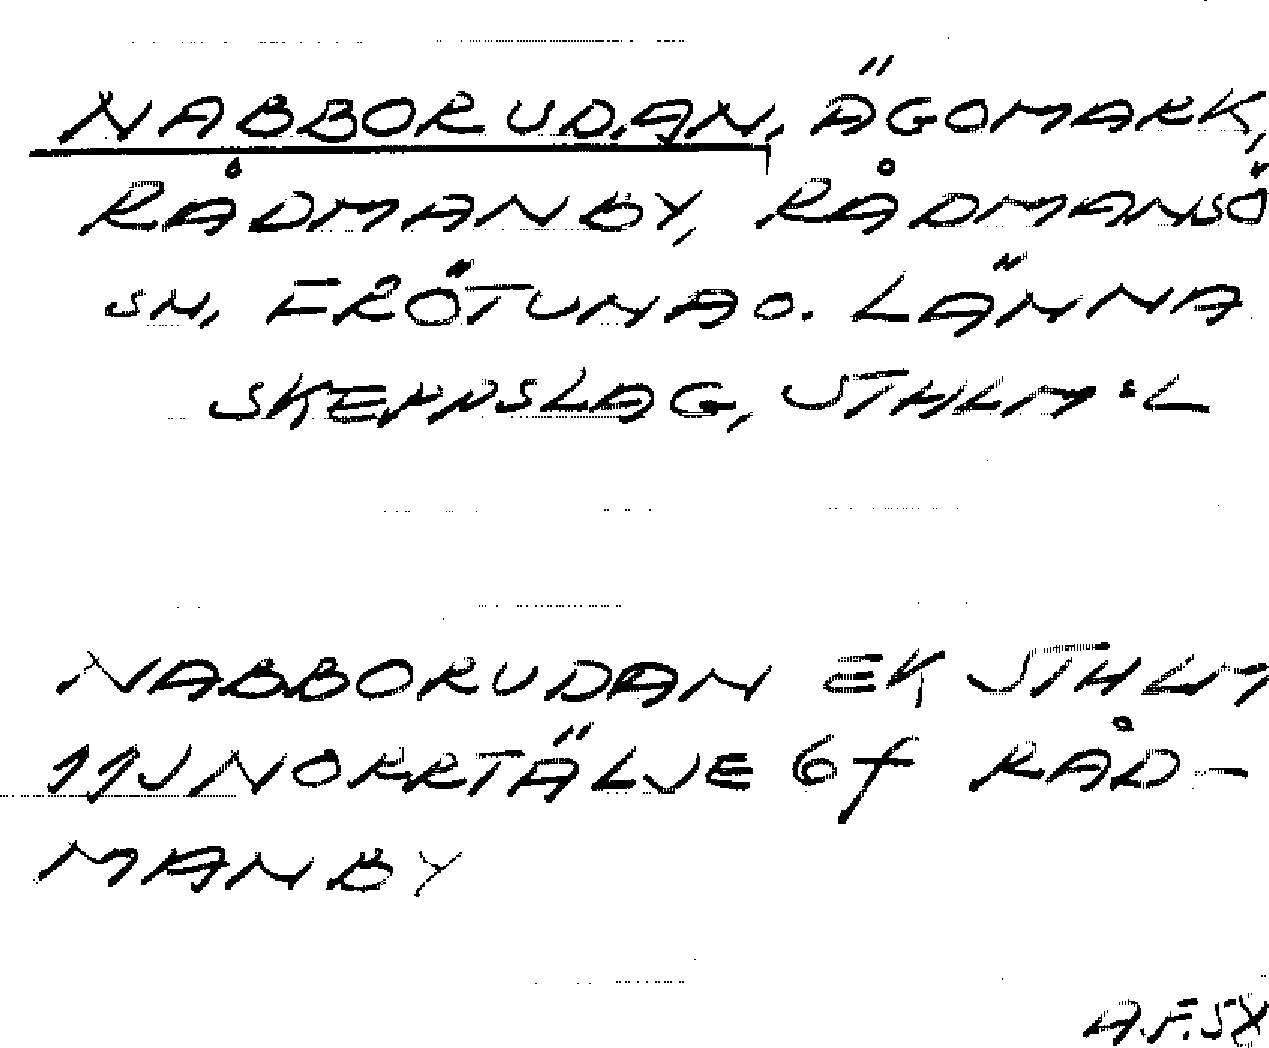 NABBORUDAN, ÄGOMARK,
RÅDMANBY, RÅDMANSÖ
SN, FRÖTUNA O. LÄNNA
SKEPPSLAG, STHLM:S L
NABBORUDAN EK STHLM
11J NORRTÄLJE 6f RÅD-
MANBY
A.F. 58